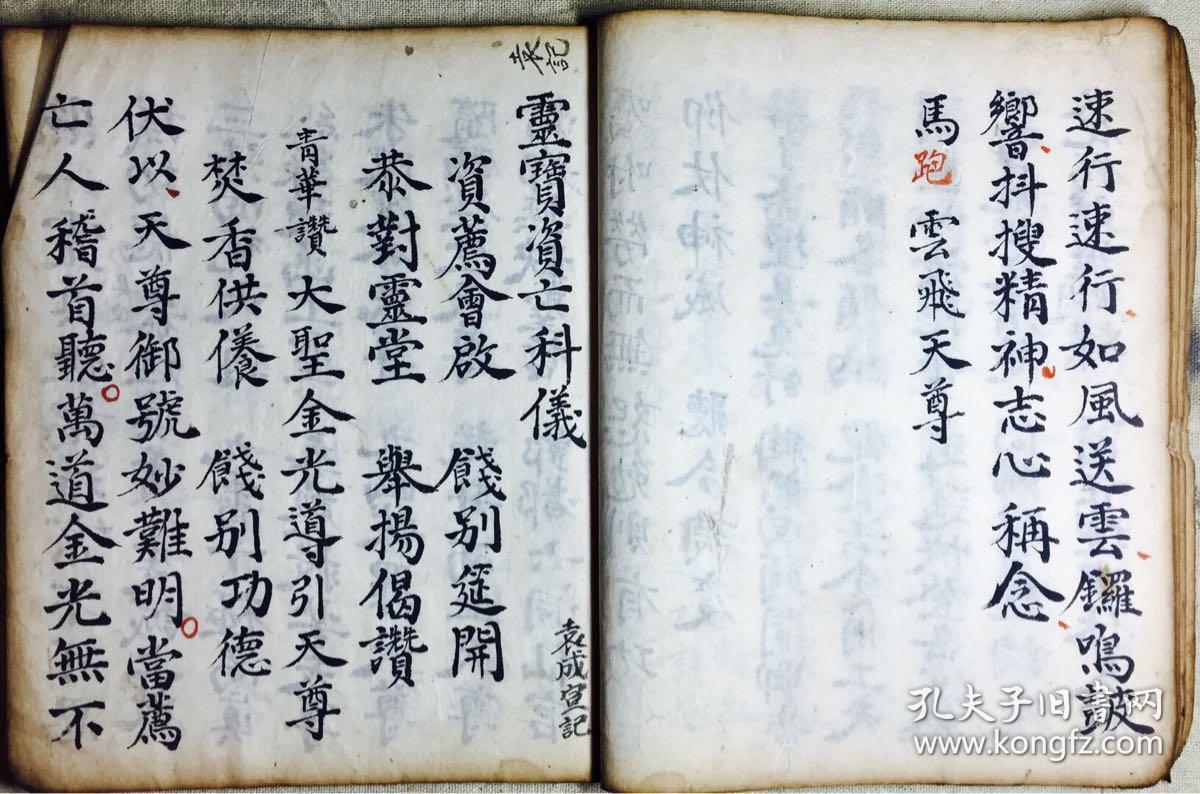 速行速行如風送雲鑼鳴鼓
響抖搜精神志心稱念
馬跑雲飛天尊
袁記
靈寶資亡科儀
袁成宣記
資薦會啟 餞別筵開
恭對靈堂 舉揚偈讚
青華讚 大聖金光導引天尊
焚香供養 餞別功德
伏以天尊御號妙難明當薦
亡人稽首聽萬道金光無不
孔夫子旧書网
www.kongfz.com